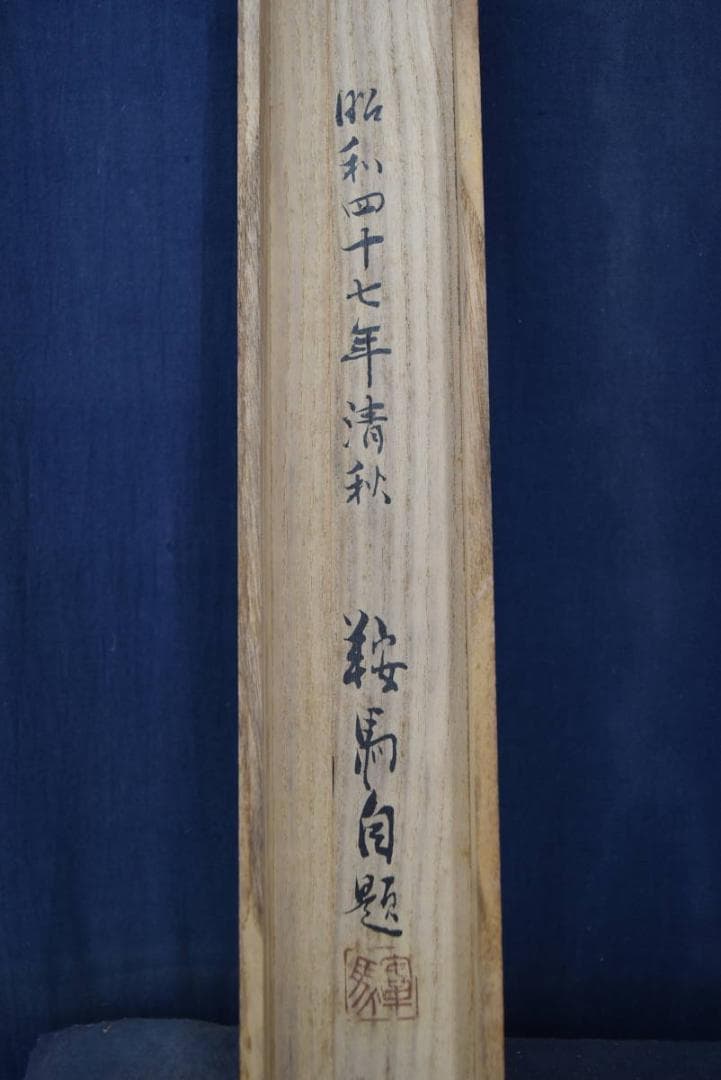 昭和四十七年清秋
鞍馬自題